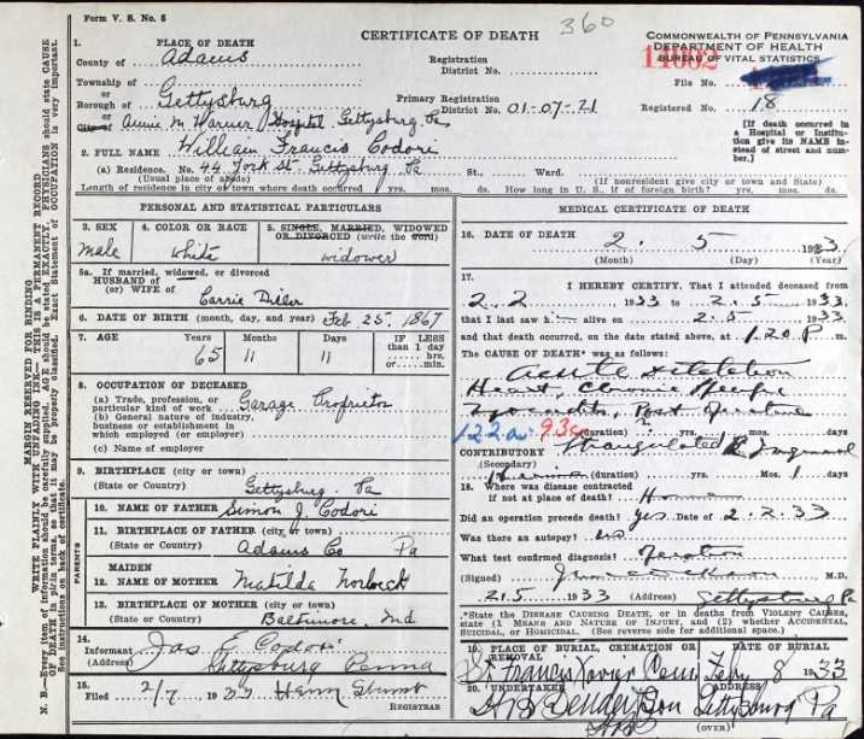 Form V. S. No. 5
360
CERTIFICATE OF DEATH
COMMONWEALTH OF PENNSYLVANIA
DEPARTMENT OF HEALTH
BUREAU OF VITAL STATISTICS
14002
File No.
Registered No. 18
[If death occurred in a Hospital or Institution give its NAME instead of street and number.]
1. PLACE OF DEATH
County of Adams
Township of
or
Borough of Gettysburg
or
City of Annie M Warner Hospital Gettysburg Pa
Registration District No.
Primary Registration District No. 01-07-21
2. FULL NAME William Francis Codori
(a) Residence. No. 44 York St. Gettysburg Pa St., Ward.
(Usual place of abode) (If nonresident give city or town and State)
Length of residence in city or town where death occurred yrs. mos. ds. How long in U. S., if of foreign birth? yrs. mos. ds.
PERSONAL AND STATISTICAL PARTICULARS
3. SEX male
4. COLOR OR RACE white
5. SINGLE, MARRIED, WIDOWED OR DIVORCED (write the word) widower
5a. If married, widowed, or divorced
HUSBAND of
(or) WIFE of Carrie
6. DATE OF BIRTH (month, day, and year) Feb 25. 1867
7. AGE Years 65 Months 11 Days 11 IF LESS than 1 day hrs. or min.
8. OCCUPATION OF DECEASED
(a) Trade, profession, or particular kind of work Garage Proprietor
(b) General nature of industry, business or establishment in which employed (or employer)
(c) Name of employer
9. BIRTHPLACE (city or town)
(State or Country) Gettysburg Pa
PARENTS
10. NAME OF FATHER Simon J. Codori
11. BIRTHPLACE OF FATHER (city or town)
(State or Country) Adams Co Pa
12. MAIDEN NAME OF MOTHER Matilda
13. BIRTHPLACE OF MOTHER (city or town)
(State or Country) Baltimore, Md.
14. Informant Jas E Codori
(Address) Gettysburg Penna
15. Filed 2/7 19 REGISTRAR
MEDICAL CERTIFICATE OF DEATH
16. DATE OF DEATH 2. 5 1933
(Month) (Day) (Year)
17. I HEREBY CERTIFY, That I attended deceased from
2.2 1933 to 2.5 1933,
that I last saw h alive on 2.5 1933
and that death occurred, on the date stated above, at 1.20 P m.
The CAUSE OF DEATH* was as follows:
Acute Dilatation
Heart, Chronic
Myocarditis, Post
122a 93c (duration) ? yrs. mos. days
CONTRIBUTORY Strangulated R Inguinal
(Secondary) (duration) yrs. Mos. 1 days
18. Where was disease contracted
if not at place of death?
Did an operation precede death? yes Date of 2.2.33
Was there an autopsy? no
What test confirmed diagnosis?
(Signed) M.D.
2.5 1933 (Address) Gettysburg Pa
*State the DISEASE CAUSING DEATH, or in deaths from VIOLENT CAUSES, state (1 MEANS AND NATURE OF INJURY, and (2) whether ACCIDENTAL, SUICIDAL, or HOMICIDAL. (See reverse side for additional space.)
19. PLACE OF BURIAL, CREMATION OR REMOVAL DATE OF BURIAL
St Francis Xavier Cem Feby 8 1933
20. UNDERTAKER ADDRESS
H B Bender Son Gettysburg Pa
(OVER)
MARGIN RESERVED FOR BINDING
WRITE PLAINLY WITH UNFADING INK—THIS IS A PERMANENT RECORD
N. B.—Every item of information should be carefully supplied. AGE should be stated EXACTLY. PHYSICIANS should state CAUSE OF DEATH in plain terms, so that it may be properly classified. Exact Statement of OCCUPATION is very important. See instructions on back of certificate.